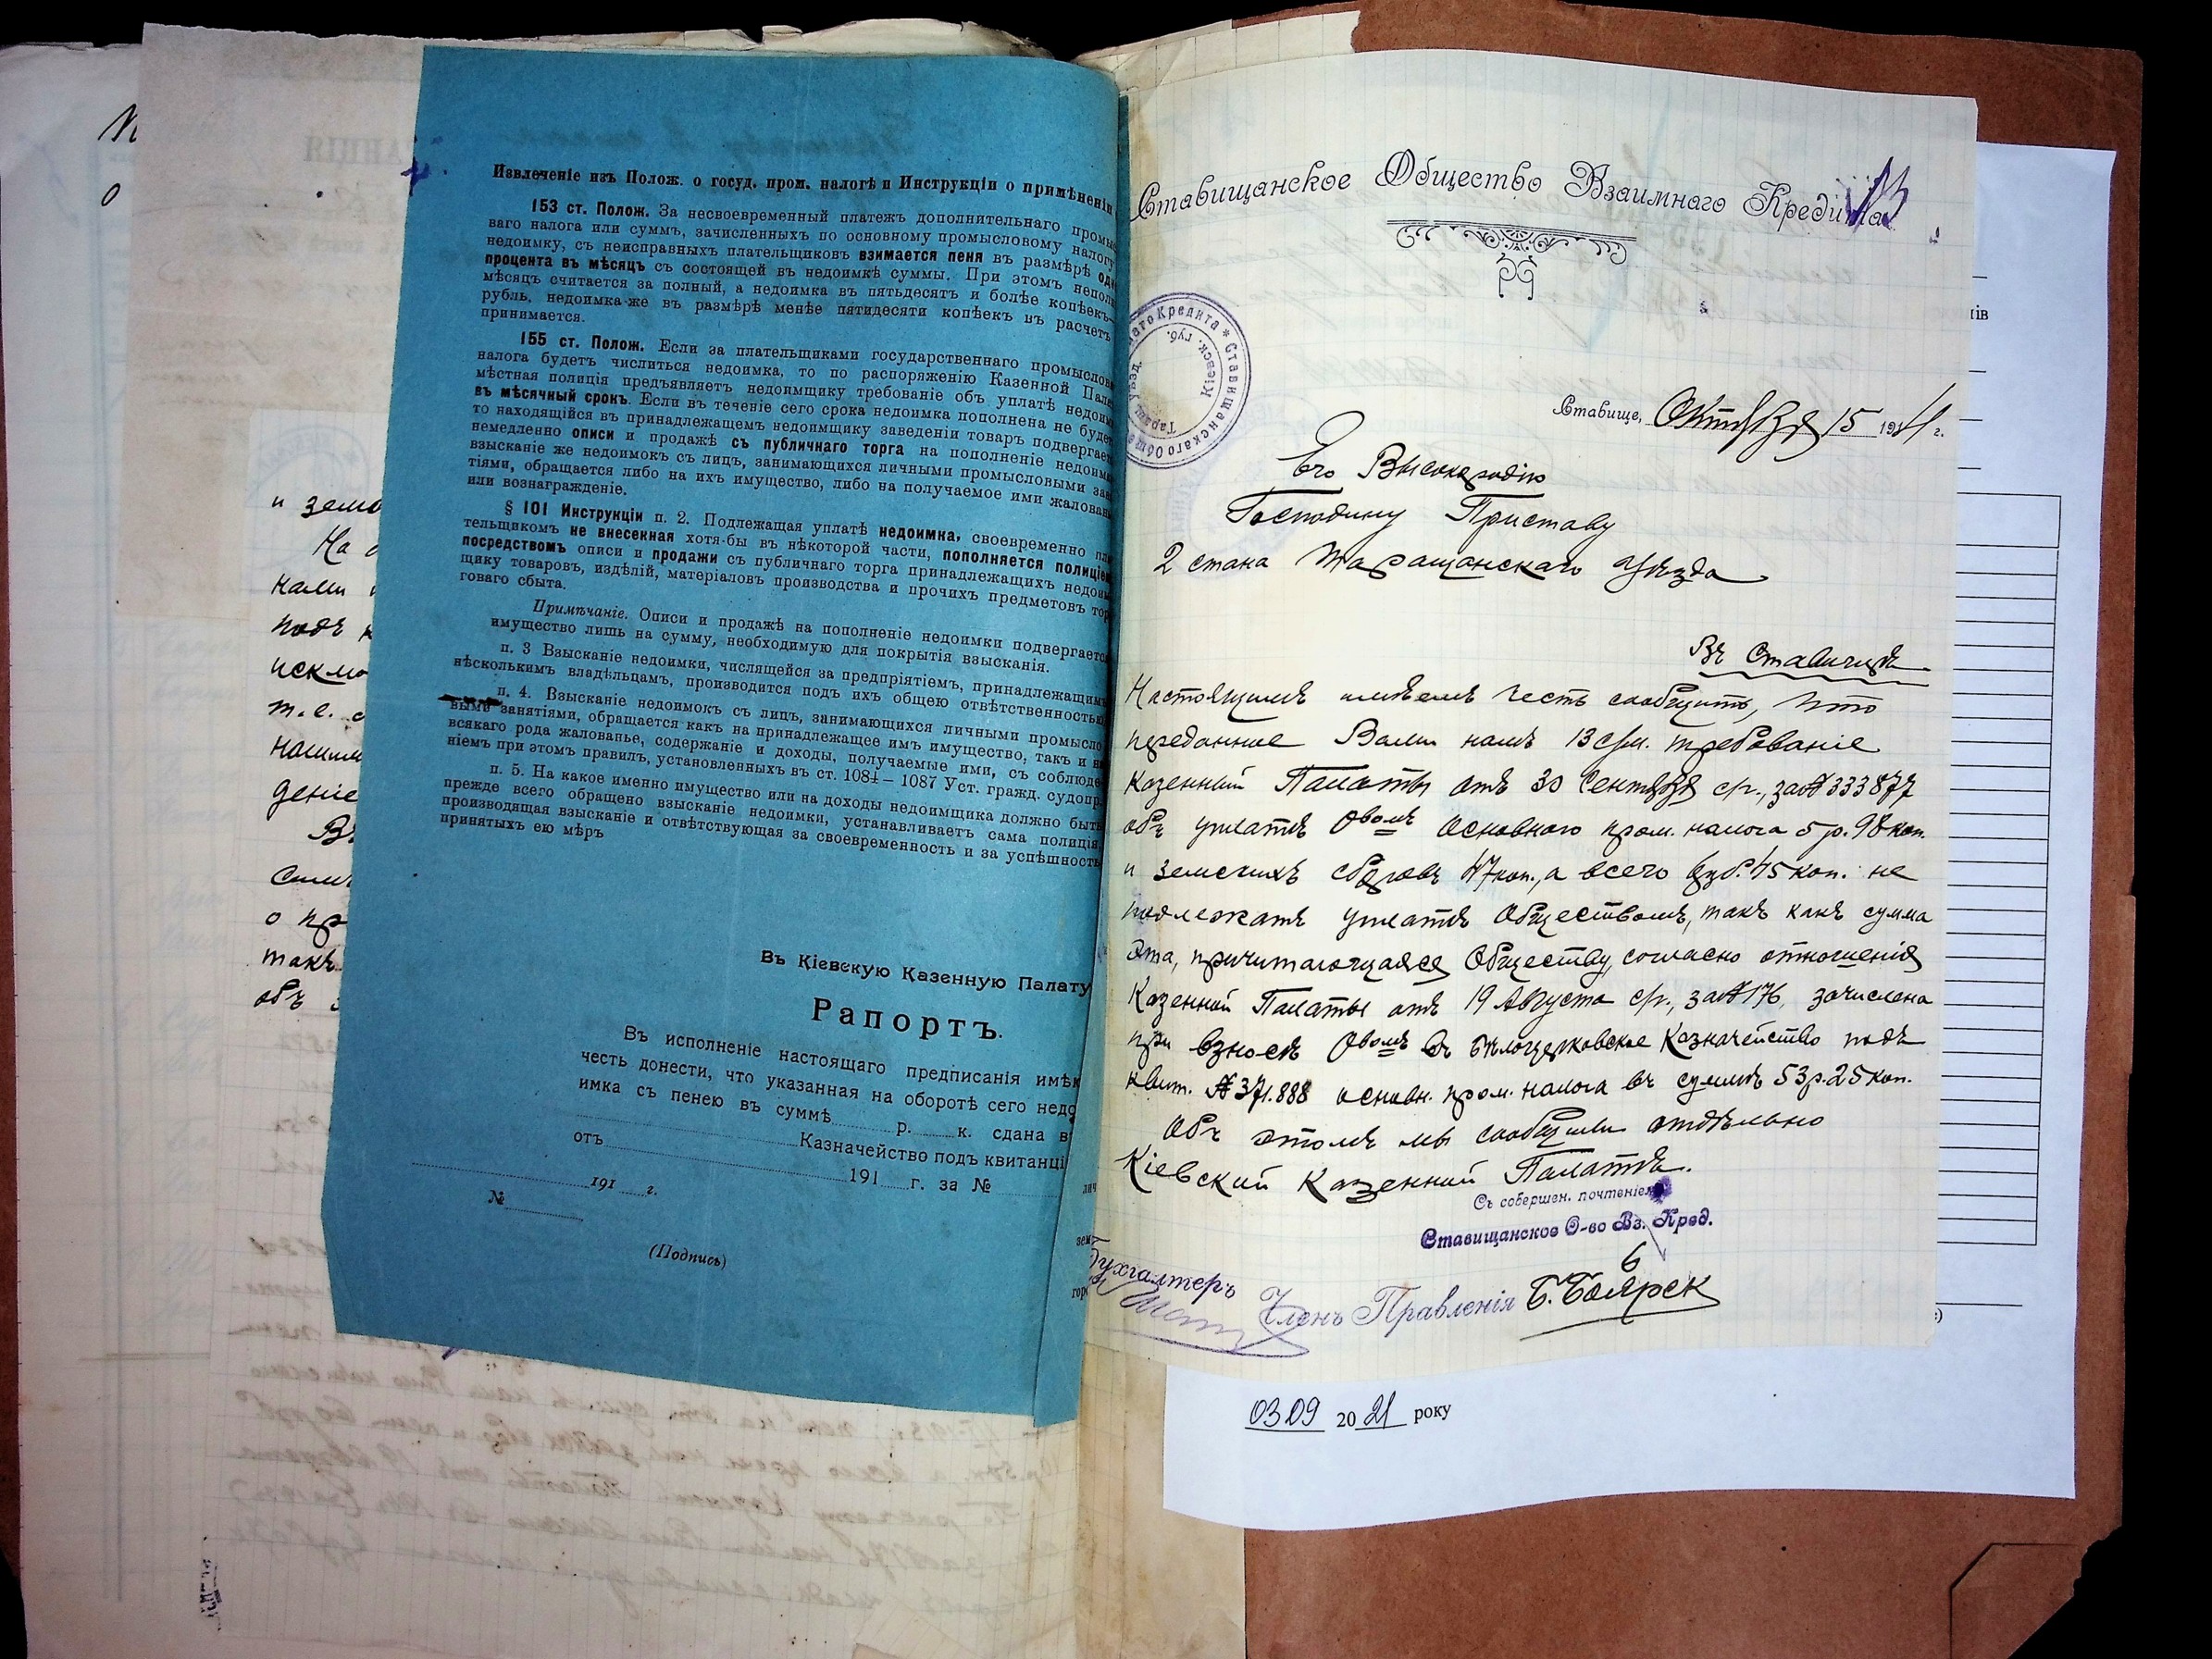 и земс
На о
нами
подъ к
искмо
т.е. с
нашим
деніе
Въ
о пр
такъ
объ з
Извлеченіе изъ Полож. о госуд. пром. налогѣ и Инструкціи о примѣненіи
153 ст. Полож. За несвоевременный платежъ дополнительнаго промыс
ваго налога или суммъ, зачисленныхъ по основному промысловому налогу
недоимку, съ неисправныхъ плательщиковъ взимается пеня въ размѣрѣ од
процента въ мѣсяцъ съ состоящей въ недоимкѣ суммы. При этомъ непол
мѣсяцъ считается за полный, а недоимка въ пятьдесятъ и болѣе копѣекъ—
рубль, недоимка-же въ размѣрѣ менѣе пятидесяти копѣекъ въ расчетъ
принимается.
155 ст. Полож. Если за плательщиками государственнаго промыслов
налога будетъ числиться недоимка, то по распоряженію Казенной Пала
мѣстная полиція предъявляетъ недоимщику требованіе объ уплатѣ недоим
въ мѣсячный срокъ. Если въ теченіе сего срока недоимка пополнена не буде
то находящійся въ принадлежащемъ недоимщику заведеніи товаръ подвергает
немедленно описи и продажѣ съ публичнаго торга на пополненіе недоим
взысканіе же недоимокъ съ лицъ, занимающихся личными промысловыми зан
тіями, обращается либо на ихъ имущество, либо на получаемое ими жалован
или вознагражденіе.
§ 101 Инструкціи п. 2. Подлежащая уплатѣ недоимка, своевременно пл
тельщикомъ не внесенная хотя-бы въ нѣкоторой части, пополняется полиціе
посредствомъ описи и продажи съ публичнаго торга принадлежащихъ недоим
щику товаровъ, издѣлій, матеріаловъ производства и прочихъ предметовъ тор
говаго сбыта.
Примѣчаніе. Описи и продажѣ на пополненіе недоимки подвергается
имущество лишь на сумму, необходимую для покрытія взысканія.
п. 3 Взысканіе недоимки, числящейся за предпріятіемъ, принадлежащимъ
нѣсколькимъ владѣльцамъ, производится подъ ихъ общею отвѣтственностью
п. 4. Взысканіе недоимокъ съ лицъ, занимающихся личными промысло
выми занятіями, обращается какъ на принадлежащее имъ имущество, такъ и на
всякаго рода жалованье, содержаніе и доходы, получаемые ими, съ соблюде
ніемъ при этомъ правилъ, установленныхъ въ ст. 1084—1087 Уст. гражд. судопр.
п. 5. На какое именно имущество или на доходы недоимщика должно быть
прежде всего обращено взысканіе недоимки, устанавливаетъ сама полиція,
производящая взысканіе и отвѣтствующая за своевременность и за успѣшность
принятыхъ ею мѣръ
Въ Кіевскую Казенную Палату
Рапортъ.
Въ исполненіе настоящаго предписанія имѣю
честь донести, что указанная на оборотѣ сего недо
имка съ пенею въ суммѣ р. к. сдана в
Казначейство подъ квитанці
отъ 191 г. за №
191 г.
№
(Подпись)
Ставищанское Общество Взаимнаго Кредита
Ставищанскаго Обще наго Кредита * Таращ. уѣзд. Кіевск. губ.
Ставище, Октября 15 1914 г.
Его Высокородію
Господину Приставу
2 стана Таращанскаго Уѣзда
Въ Ставищѣ
Настоящимъ имѣемъ честь сообщить, что
переданное Вами намъ 13 с/м. требованіе
Казенной Палаты отъ 30 Сентября с/г., за № 333877
объ уплатѣ Овомъ основного пром. налога 5 р. 98 коп.
и земскихъ сборовъ 47 коп., а всего 6 руб. 45 коп. не
подлежатъ уплатѣ Обществомъ, такъ какъ сумма
эта, причитающаяся Обществу, согласно отношенія
Казенной Палаты отъ 19 Августа с/г., за № 176, зачислена
при взносѣ Овомъ въ Бѣлоцерковское Казначейство подъ
квит. № 371.888 основн. пром. налога въ суммѣ 53 р. 25 коп.
Объ этомъ мы сообщили отдѣльно
Кіевской Казенной Палатѣ.
Съ совершен. почтеніем
Ставищанское О-во Вз. Кред.
Бухгалтеръ
Членъ Правленія Б. Боярск
03.09 2021 року